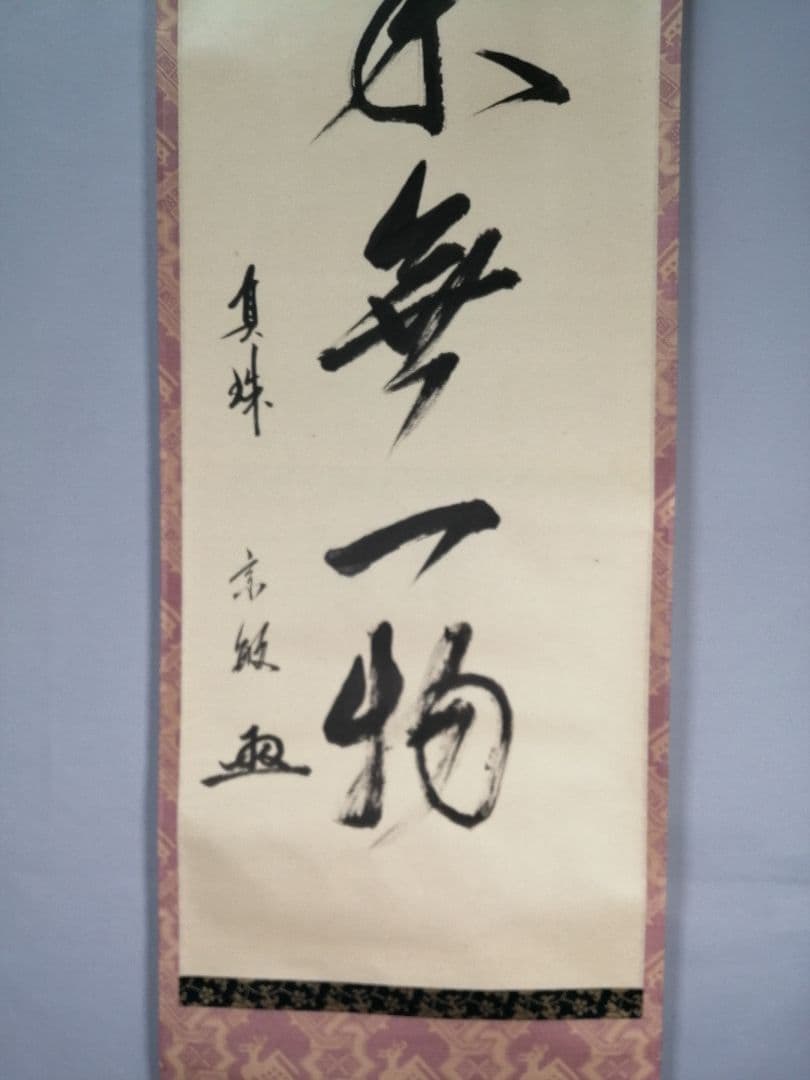 来無一物
真珠 宗敏